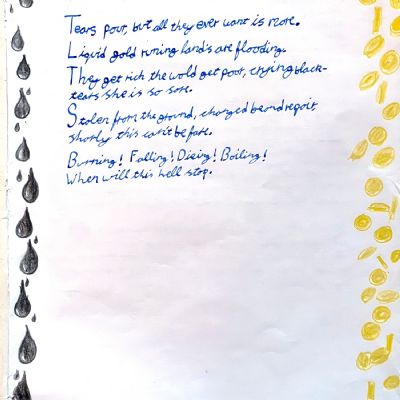 Tears pour, but all they ever want is more.
Liquid gold runing lands are flooding.
They get rich the wold get poor, crying black-
tears she is so sore.
Stolen from the ground, changed beond repair
shorly this can't be fare.
Burning! Falling! Dieing! Boiling!
When will this hell stop.